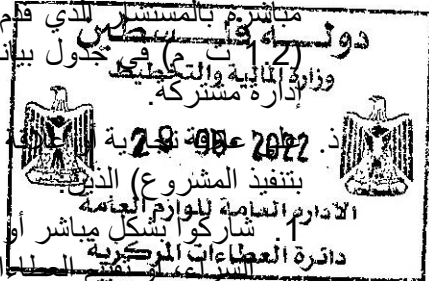 مباشرة بالمستشار الذي قدم
دولـــة فلـــسطين
(2.1 ب م) في جدول بيانا
وزارة المالية والتخطيط
إدارة مشتركة.
ذ. علاقة
29 -06- 2022
بتنفيذ المشروع) الذين:
الادارة العامة للوازم العامة
1. شاركوا بشكل مباشر أو
دائرة العطاءات المركزية
الشراء، تقييم العطاءا